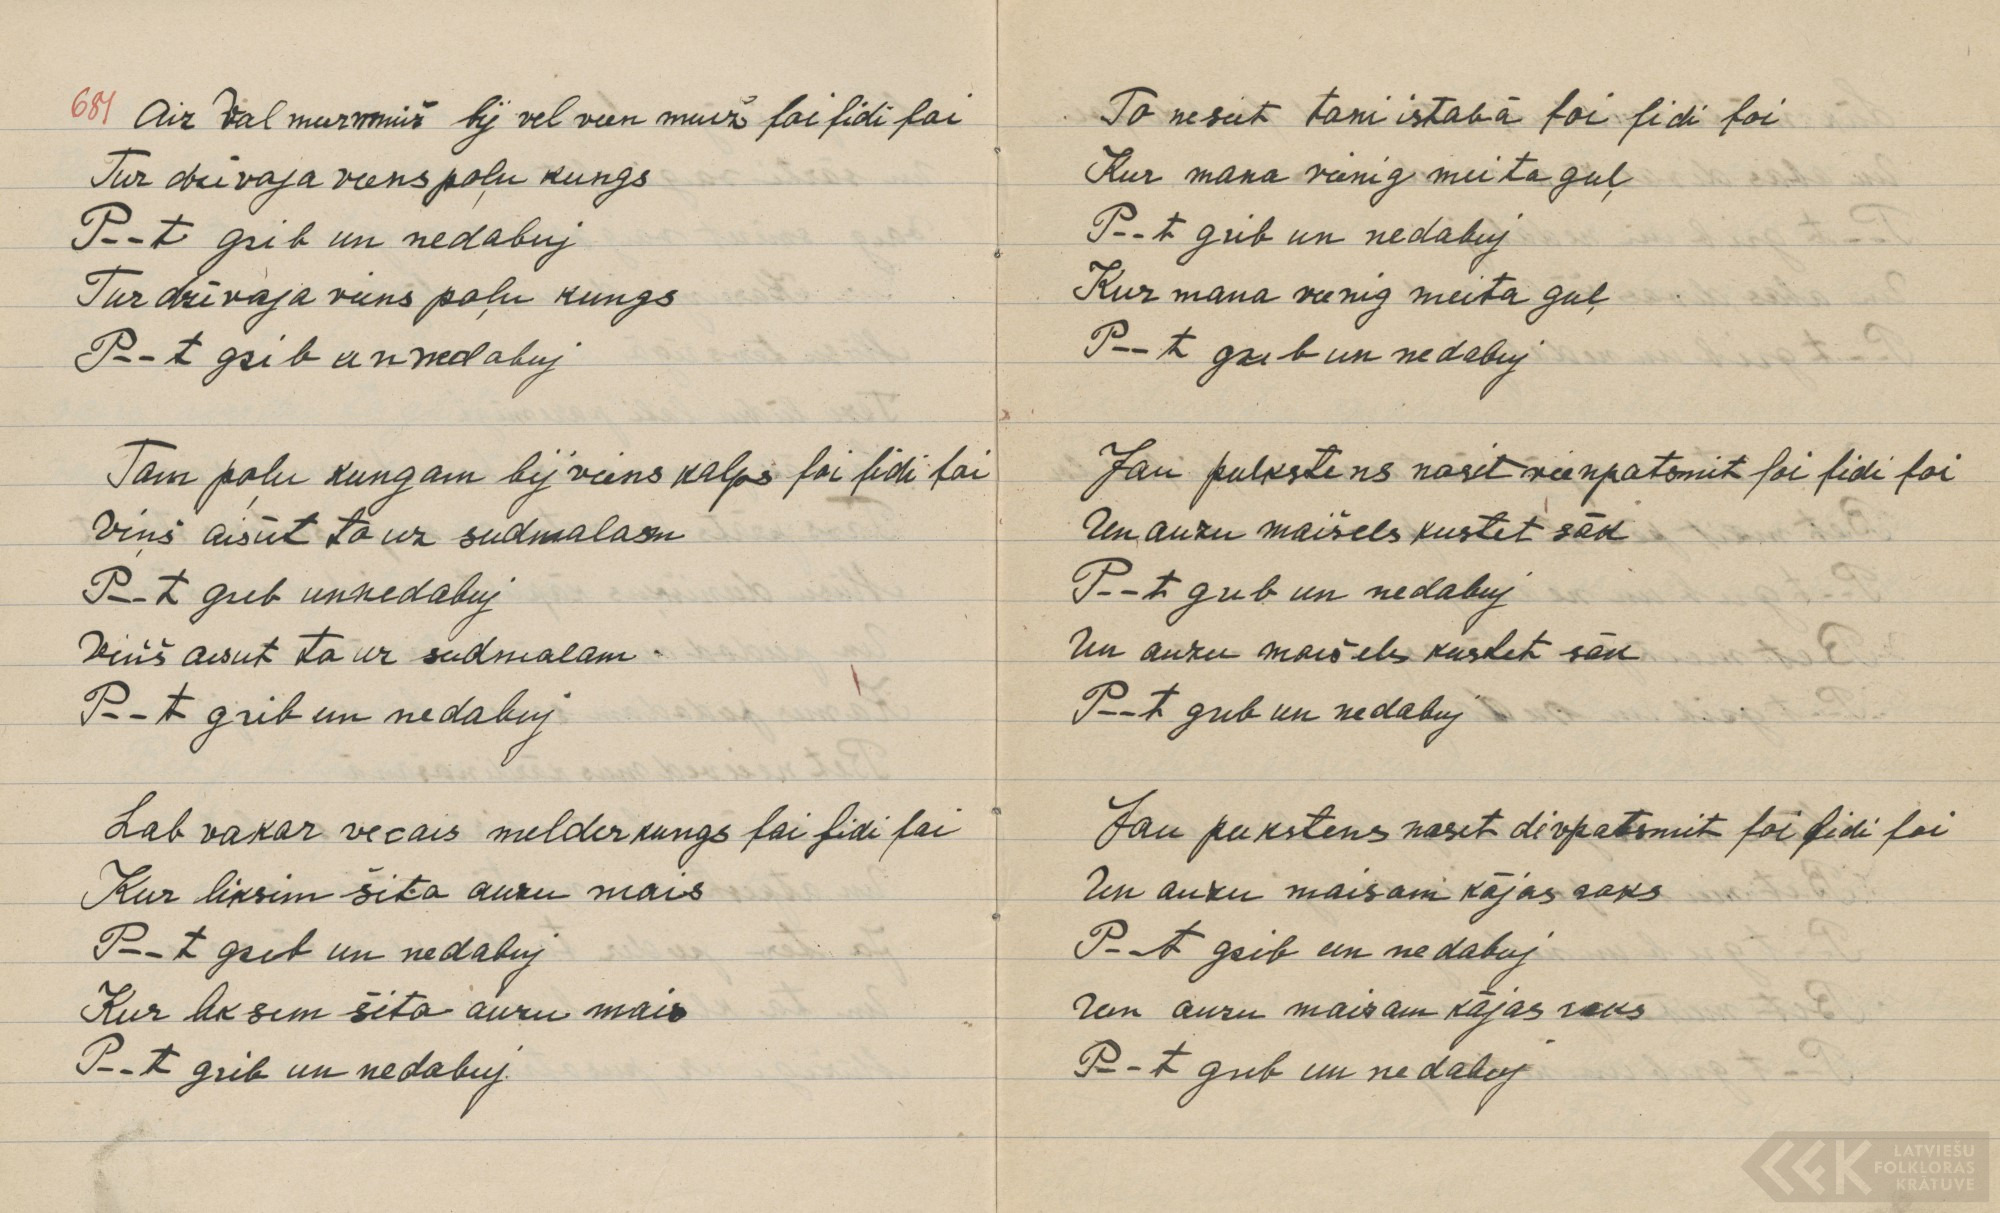 681 Aiz Valmurmuiž bij vel vien muiž fai fidi fai
Tur dzīvaja viens poļu kungs
P--t grib un nedabuj
Tur dzīvaja viens poļu kungs
P--t grib un nedabuj
Tam poļu kungam bij viens kalps fai fidi fai
Viņš aisūt to uz sudmalam
P--t grib un nedabuj
Viņš aisut to uz sudmalam
P--t grib un nedabuj
Lab vakar vecais melderkungs fai fidi fai
Kur liksim šito auzu mais
P--t grib un nedabuj
Kur liksim šito auzu mais
P--t grib un nedabuj
To nesiet tani istabā fai fidi fai
Kur mana vienig meita guļ
P--t grib un nedabuj
Kur mana vienig meita guļ
P--t grib un nedabuj
Jau pulkstens nosit vienpatsmit fai fidi fai
Un auzu maišels kustet sāk
P--t grib un nedabuj
Un auzu maišels kustet sāk
P--t grib un nedabuj
Jau pukstens nosit divpatsmit fai fidi fai
Un auzu maisam kājas roks
P--t grib un nedabuj
Un auzu maisam kājas roks
P--t grib un nedabuj
LATVIEŠU
FOLKLORAS
KRĀTUVE